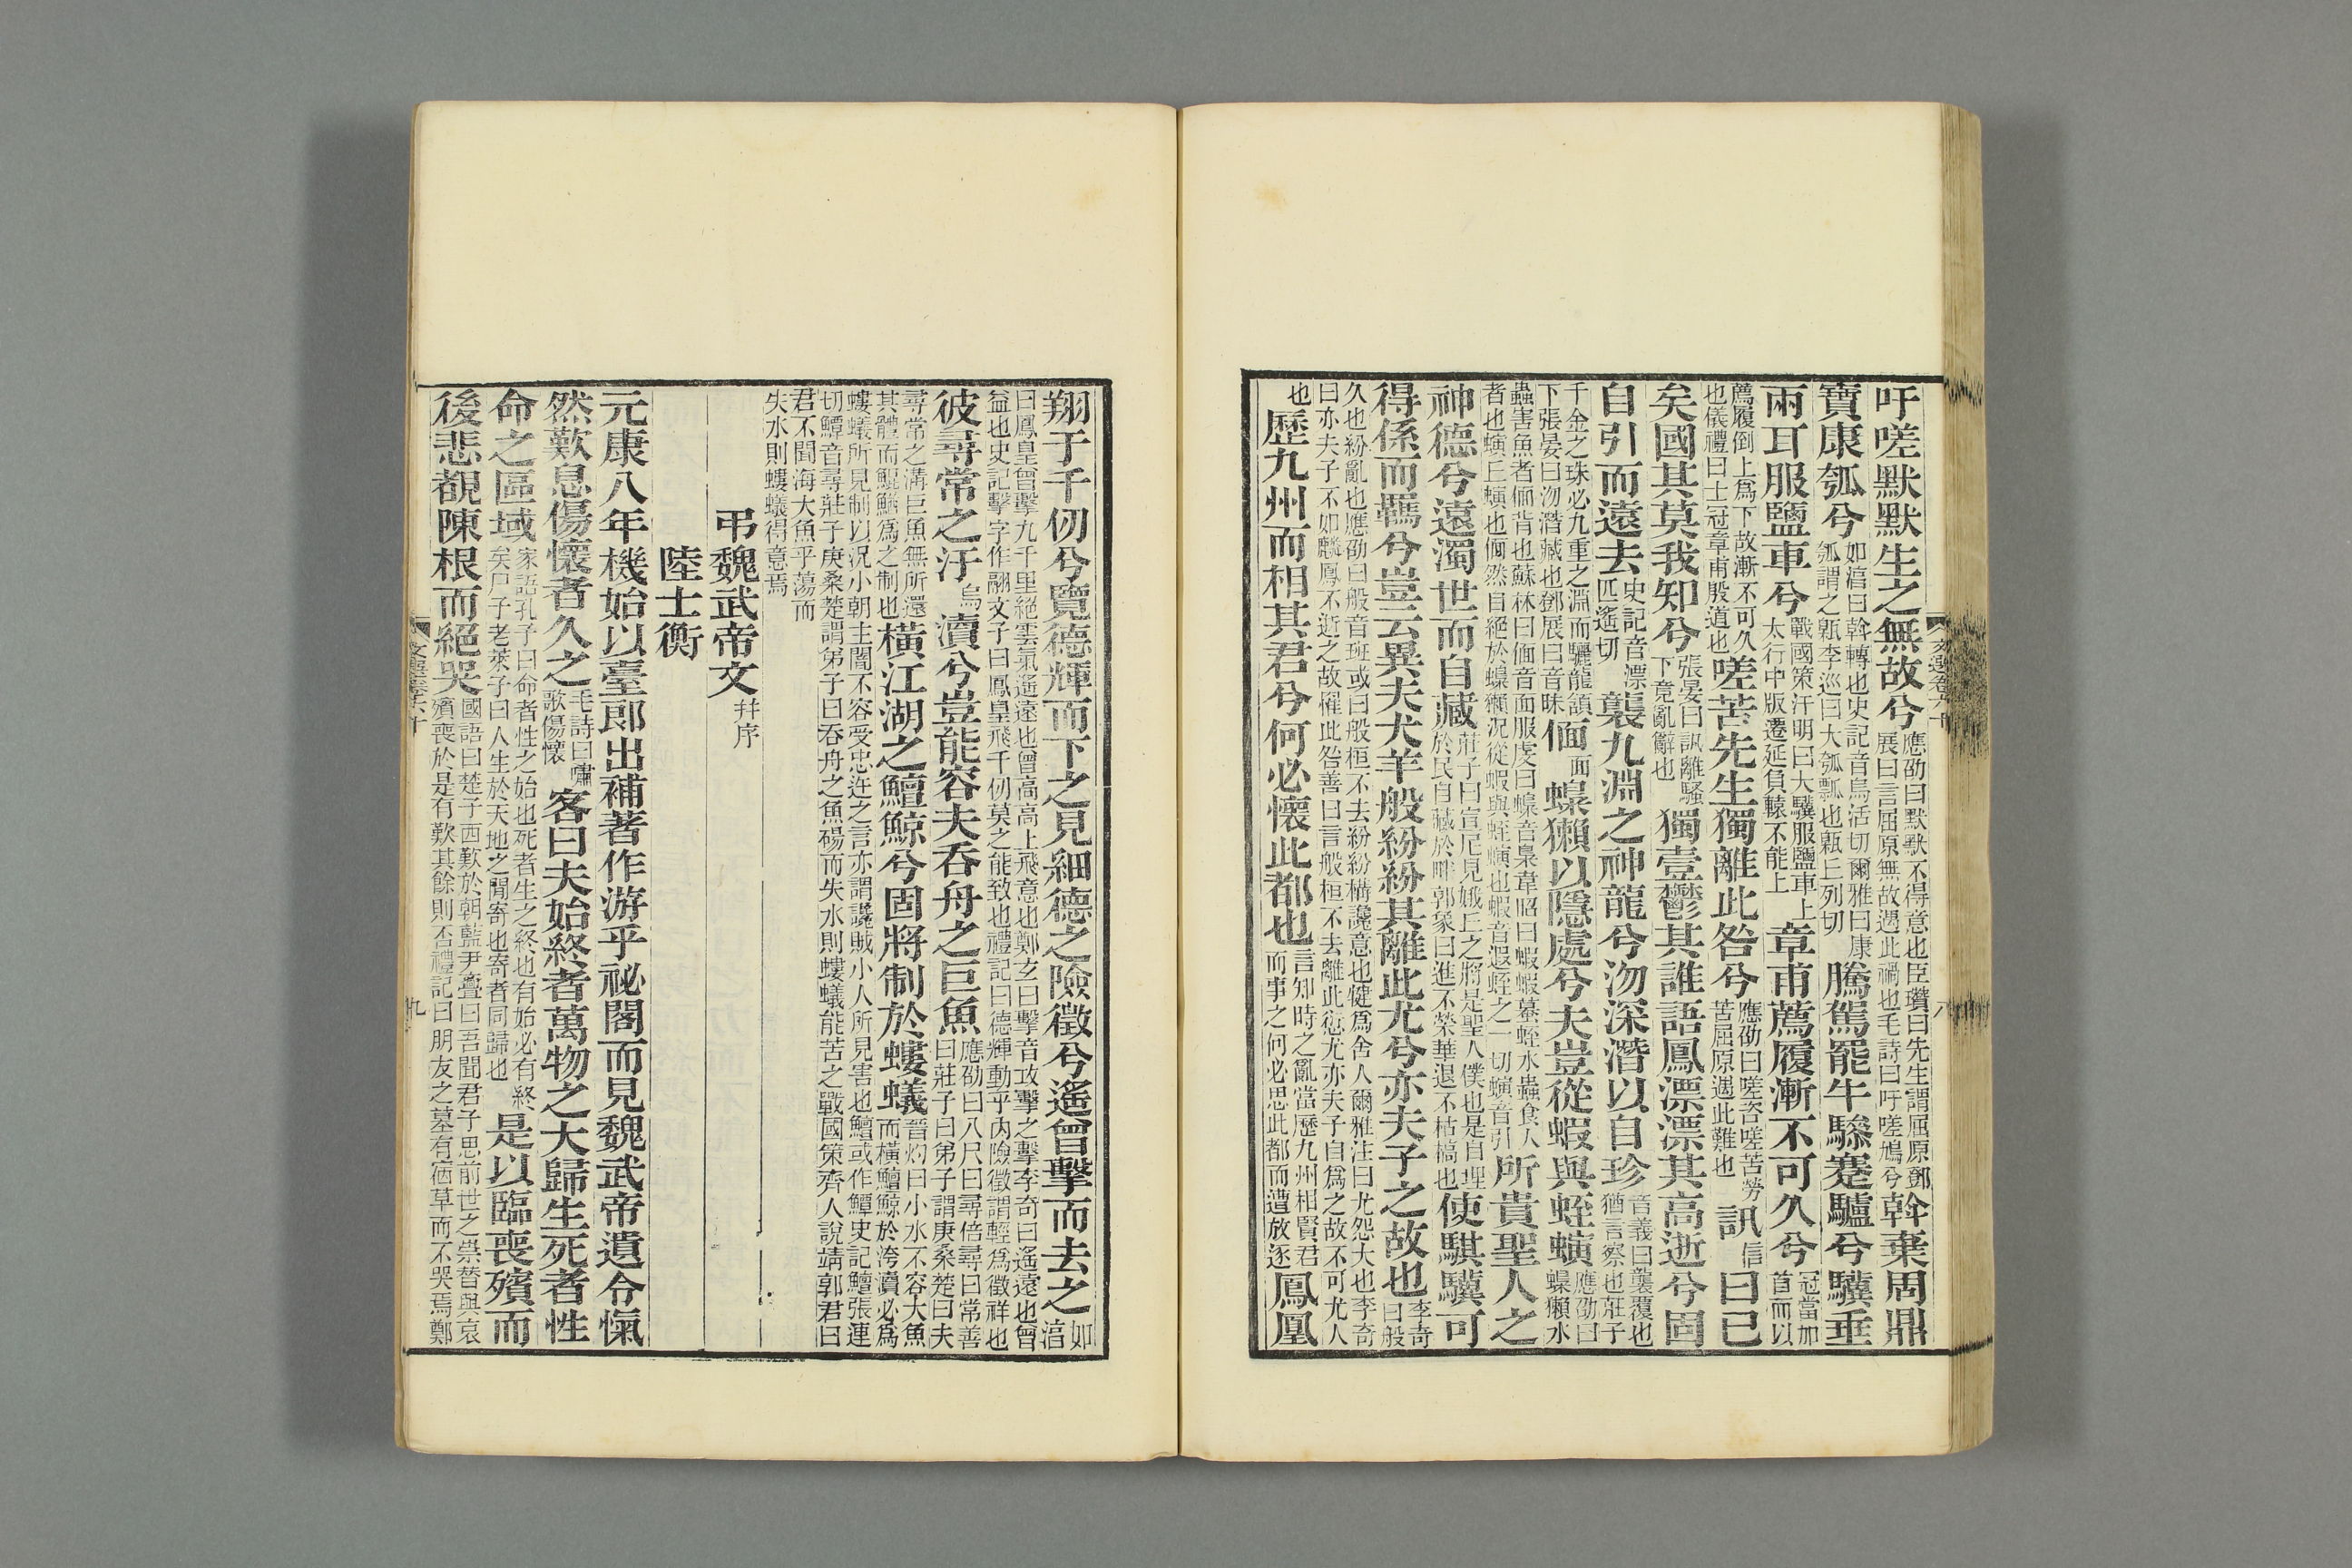 吁嗟默默生之無故兮應劭曰默默不得意也臣瓚曰先生謂屈原鄧展曰言屈原無故遇此禍也毛詩曰吁嗟鳩兮斡棄周鼎
寶康瓠兮如淳曰斡轉也史記音烏活切爾雅曰康瓠謂之甈李巡曰大瓠瓢也甈丘列切騰駕罷牛驂蹇驢兮驥垂
兩耳服鹽車兮戰國策汗明曰大驥服鹽車上太行中版遷延負轅不能上章甫薦履漸不可久兮冠當加首而以
薦履倒上爲下故漸不可久也儀禮曰士冠章甫殷道也嗟苦先生獨離此咎兮應劭曰嗟咨嗟苦勞苦屈原遇此難也訊信曰已
矣國其莫我知兮張晏曰訊離騷下竟亂辭也獨壹鬱其誰語鳳漂漂其高逝兮固
自引而遠去史記音漂匹遙切襲九淵之神龍兮沕深潛以自珍音義曰襲覆也猶言察也莊子
千金之珠必九重之淵而驪龍頷下張晏曰沕潛藏也鄧展曰音昧偭面蟂獺以隱處兮夫豈從蝦與蛭螾應劭曰蟂獺水
蟲害魚者偭背也蘇林曰偭音面服虔曰蟂音梟韋昭曰蝦蝦蟇蛭水蟲食人者也螾丘螾也偭然自絕於蟂獺況從蝦與蛭螾也蝦音遐蛭之一切螾音引所貴聖人之
神德兮遠濁世而自藏莊子曰宣尼見娥丘之將是聖人僕也是自埋於民自藏於畔郭象曰進不榮華退不枯槁也使騏驥可
得係而羈兮豈云異夫犬羊般紛紛其離此尤兮亦夫子之故也李奇曰般
久也紛亂也應劭曰般音班或曰般桓不去紛紛構讒意也犍爲舍人爾雅注曰尤怨大也李奇曰亦夫子不如麟鳳不逝之故罹此咎善曰言般桓不去離此愆尤亦夫子自爲之故不可尤人
也歷九州而相其君兮何必懷此都也言知時之亂當歷九州相賢君而事之何必思此都而遭放逐鳳凰
文選卷六十
八
翔于千仞兮覽德輝而下之見細德之險徵兮遙曾擊而去之如淳
曰鳳皇曾擊九千里絕雲氣遙遠也曾高高上飛意也鄭玄曰擊音攻擊之擊李奇曰遙遠也曾益也史記擊字作翮文子曰鳳皇飛千仞莫之能致也禮記曰德輝動乎内險徵謂輕爲徵祥也
彼尋常之汙烏瀆兮豈能容夫吞舟之巨魚應劭曰八尺曰尋倍尋曰常善曰莊子曰弟子謂庚桑楚曰夫
尋常之溝巨魚無所還其體而鯢鰌爲之制也橫江湖之鱣鯨兮固將制於螻蟻晉灼曰小水不容大魚而橫鱣鯨於洿瀆必爲
螻蟻所見制以況小朝主闇不容受忠迕之言亦謂讒賊小人所見害也鱣或作鱏史記鱣張連切鱏音尋莊子庚桑楚謂弟子曰吞舟之魚碭而失水則螻蟻能苦之戰國策齊人說靖郭君曰
君不聞海大魚乎蕩而失水則螻蟻得意焉
弔魏武帝文幷序
陸士衡
元康八年機始以臺郞出補著作游乎祕閣而見魏武帝遺令愾
然歎息傷懷者久之毛詩曰嘯歌傷懷客曰夫始終者萬物之大歸生死者性
命之區域家語孔子曰命者性之始也死者生之終也有始必有終矣尸子老萊子曰人生於天地之閒寄也寄者同歸也是以臨喪殯而
後悲覩陳根而絕哭國語曰楚子西歎於朝藍尹亹曰吾聞君子思前世之崇替與哀殯喪於是有歎其餘則否禮記曰朋友之墓有宿草而不哭焉鄭
文選卷六十
九